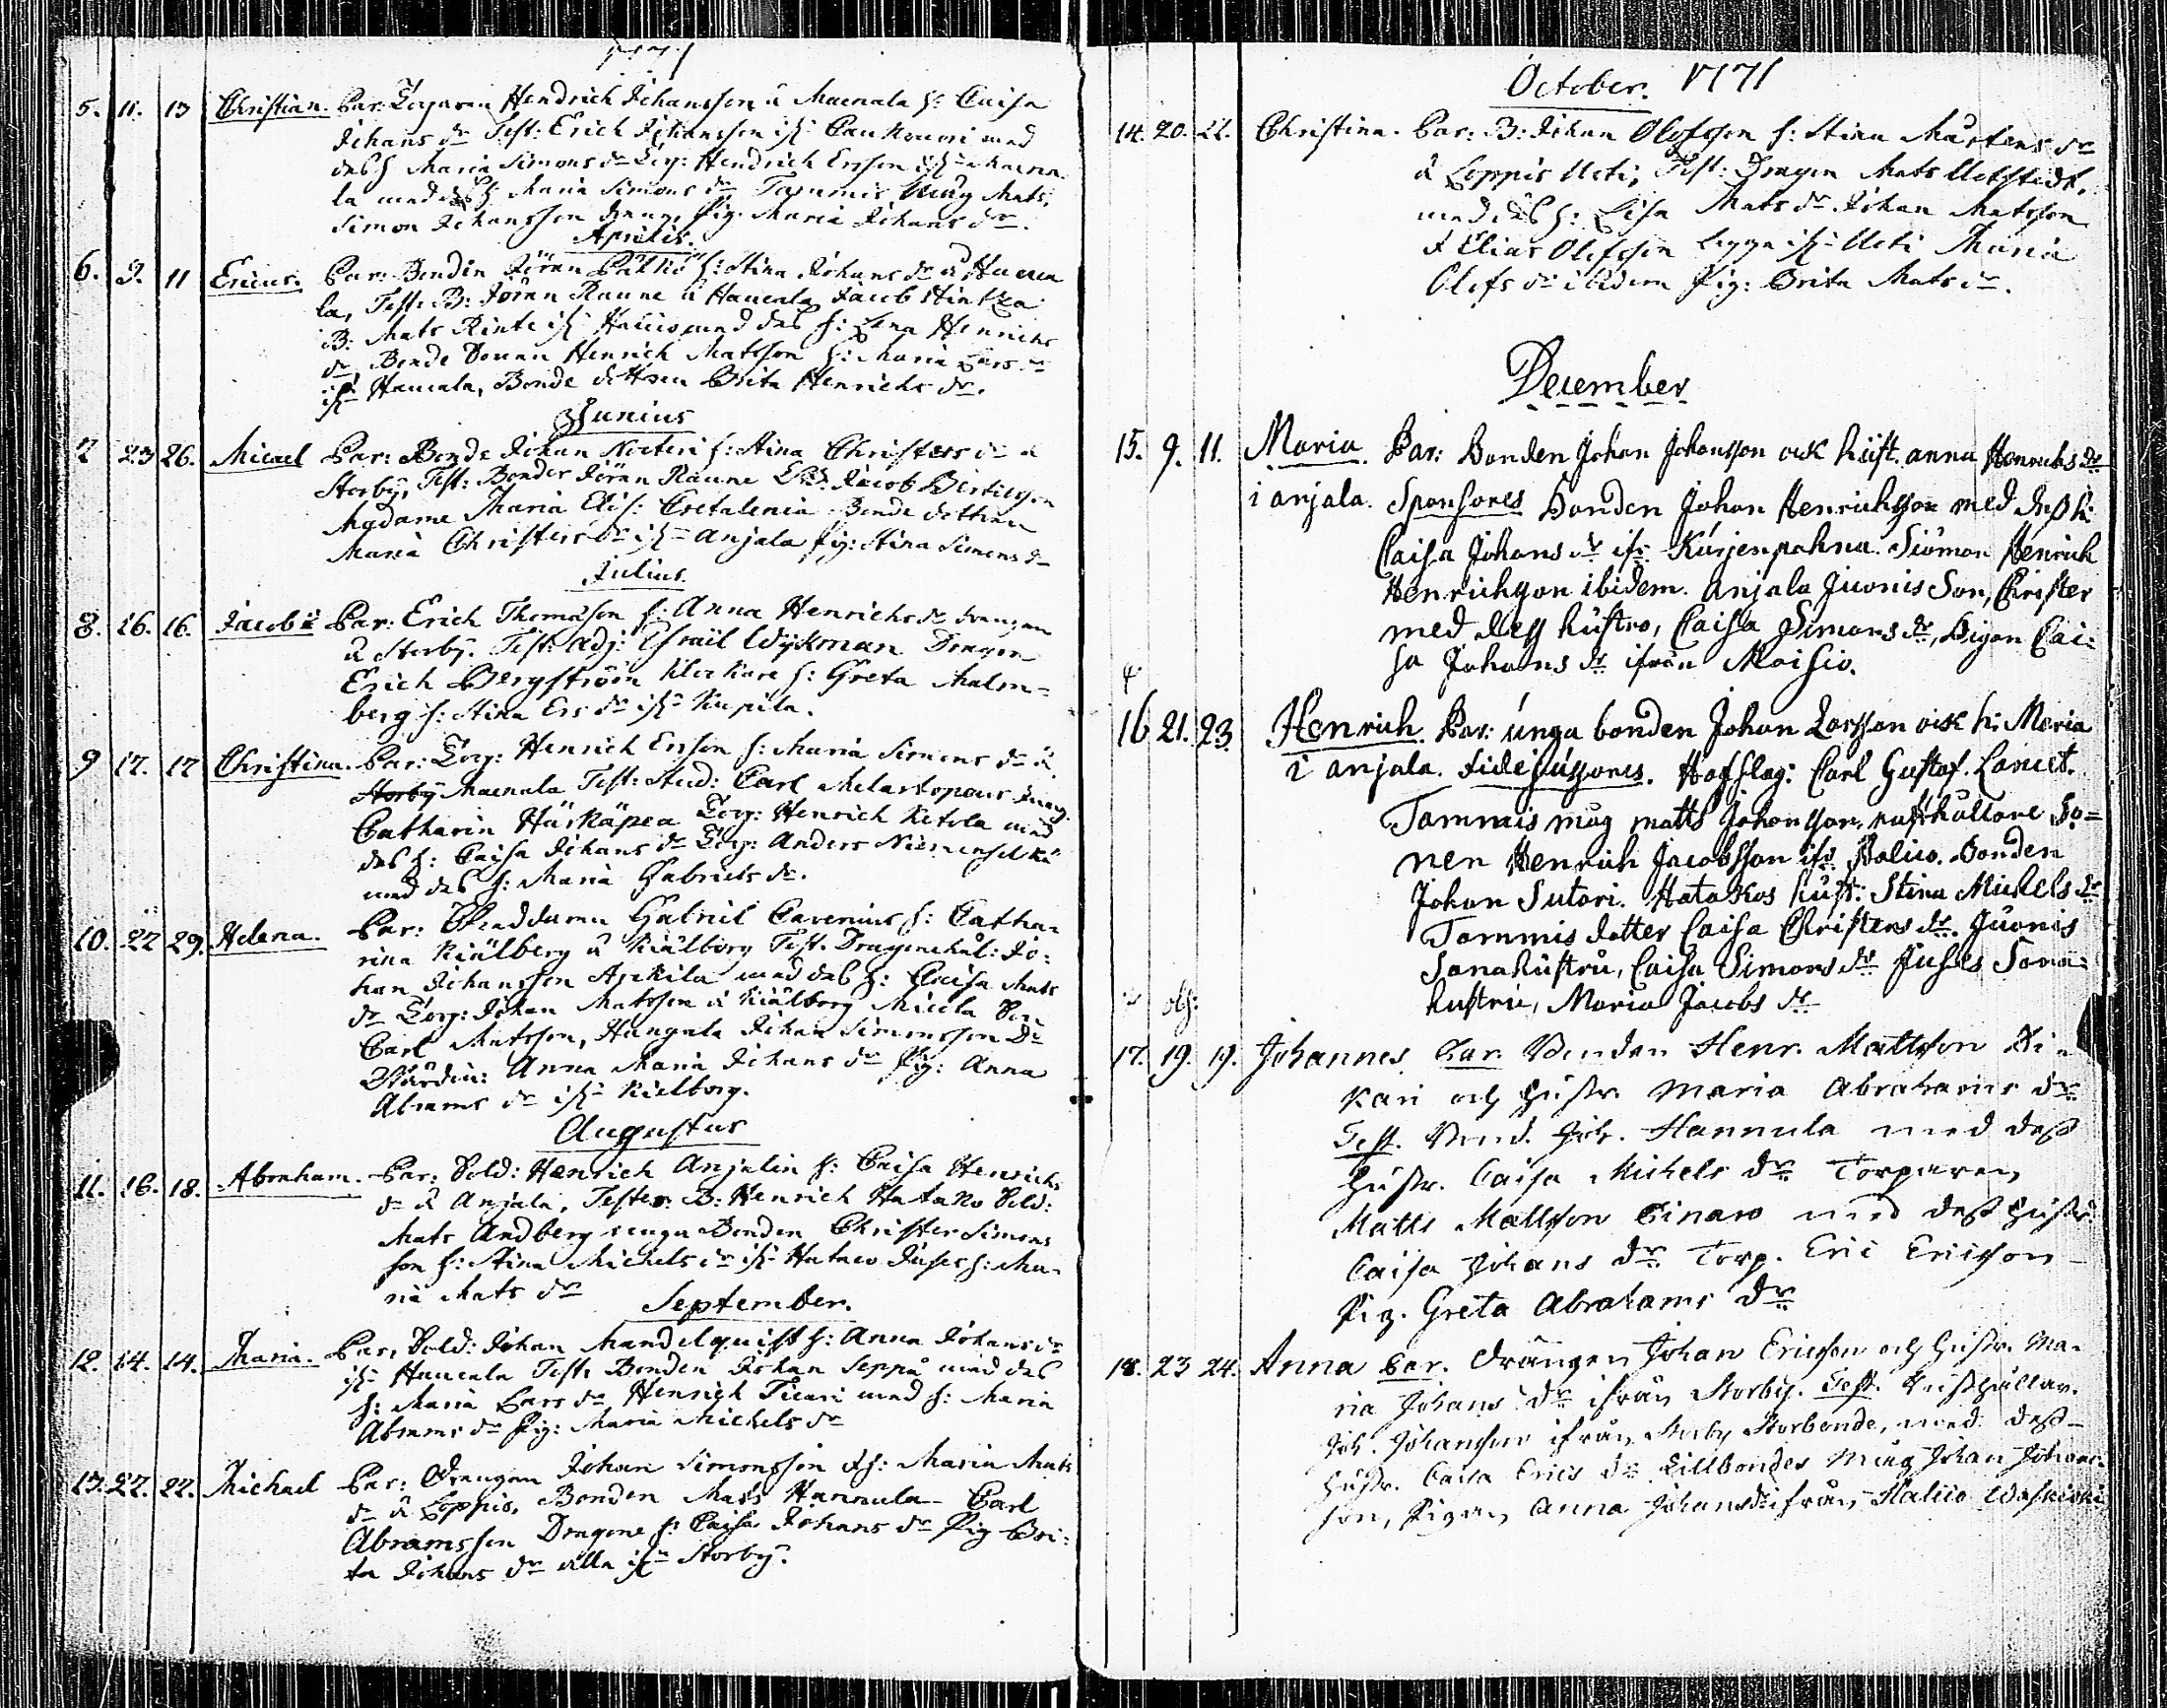 5. 11. 13 Christian. Par: Torparen Hendrich Johansson å Muenala h: Caisa
Johans dr Test: Erich Johansson ifr med
dess h Maria Simons dr Torp: Hendrich Ersson ifr
la med dess h Maria Simons dr Tammis Måg Mats,
Simon Johansson dreng, Pig. Maria Johans dr.
Aprilis.
6. 9. 11 Ericus. Par: Bonden Jöran h: Stina Johans dr å Havea
la, Test: B: Jöran Raune å Haucala, Jacob
B: Mats Rinte ifr med dess h: Lena Henrichs
dr, Bonde Sonen Henrich Matsson h: Maria Lars dr
ifr Haucala, Bonde dottren Brita Henrichs dr.
Junius
7 23 26. Micael Par: Bonde Johan h: Stina Christers dr å
Storby, Test: Bonder Jöran Raune Jacob
Madame Maria Elis: Cretalenia Bonde dottren
Maria Christers dr ifr Anjala Pig: Stina Simons dr
Julius.
8. 16. 16. Jacob Par: Erich Thomasson h: Anna Henrichs dr drengen
å Storby. Test: Adj: Esrail Wijkman Dragon
Erich Bergström Klockare h: Greta Malm=
berg h: Stina Ers dr ifr Kupila.
9 17. 17 Christina. Par: Torp: Henrich Ersson h: Maria Simons dr å
Storby Muenala Test: Stud: Carl Melartopaeus
Catharin Härkäpea Torp: Henrich Ketola med
dess h: Caisa Johans dr Torp: Anders
med dess h: Maria Gabriels dr.
10. 22 29. Helena. Par: Gabriel Cavenius h: Catha-
rina Kiälberg å Kiälborg Test. Jo:
han Johansson Ankila med dess h: Caisa Mats
dr Torp: Johan Matsson å Kiälborg Micela Son
Carl Matsson, Hangala Johan Simonsson
Anna Maria Johans dr Pig: Anna
Abrams dr ifr Kielborg.
Augustus
11. 16. 18. Abraham. Par: Sold: Henrich Anjalin h: Caisa Henrichs
dr å Anjala, Testes: B: Henrich Hatako Sold:
Mats Andberg unga Bonden Christer Simons
son h: Stina Michels dr ifr Juses h: Ma-
ria Mats dr
September.
12. 14. 14. Maria. Par: Sold: Johan Mandelquist h: Anna Johans dr
ifr Haucala Test: Bonden Johan Seppä med dess
h: Maria Lars dr Henrich Ticari med h: Maria
Abrams dr Pig: Maria Michels dr
13. 22. 22. Michael Par: Drengen Johan Simonsson & h: Maria Mats
dr å Loppis, Bonden Mats Hannula Carl
Abramsson Dragone h: Caisa Johans dr Pig Bri:
ta Johans dr alla ifr Storby.
October. 1771
14. 20. 22. Christina. Par: B: Johan Olofsson h: Stina Mårtens dr
å Loppis Uoti; Test: Dragon Mats
med dess h: Lisa Mats dr Johan Matsson
& Elias Olofsson ifr Uoti Maria
Olofs dr ibidem Pig: Brita Mats dr.
December
15. 9. 11. Maria Par: Bonden Johan Johansson ock hust. anna Henrichs dr
i anjala. Sponsores Bonden Johan Henrichsson med dess h:
Caisa Johans dr ifr Kurjenpohna. Siömon Henrich
Henrichsson ibidem. Anjala Juonis Son, Christer
med dess hustro, Caisa Simons dr, Pigan Cai:
sa Johans dr ifrån Moisio.
16 21. 23 Henrich. Par: unga bonden Johan Larsson ock h: Maria
i anjala. Fidejussores. Hofslag: Carl Gustaf.
Tammis måg matts Johansson, rusthållare So=
nen Henrich Jacobsson ifr Bonden
Johan Sutari. Hatakos hust: Stina Michels dr
Tammis dotter Caisa Christers dr. Juonis
Sonahustru, Caisa Simons dr Juses Sona:
hustru, Maria Jacobs dr
17. 19. 19. Johannes Par. Bonden Henr. Mattsson
kari och hustr. Maria Abrahams dr
Test. Bond. Joh. Hannula med dess
hustr. Caisa Michels dr Torparen
Matts Mattsson Einaro med dess hustr
Caisa Johans dr Torp. Eric Ericsson
Pig. Greta Abrahams dr
18. 23 24. Anna Par. Drängen Johan Ericsson och hustr. Ma-
ria Johans dr ifrån Storby. Test. Rusthållar.
Joh. Johansson ifrån Storby Storbonde, med dess
hustr. Caisa Erics dr Lillbondes Måg Johan Johans-
son, Pigan Anna Johansdr ifrån